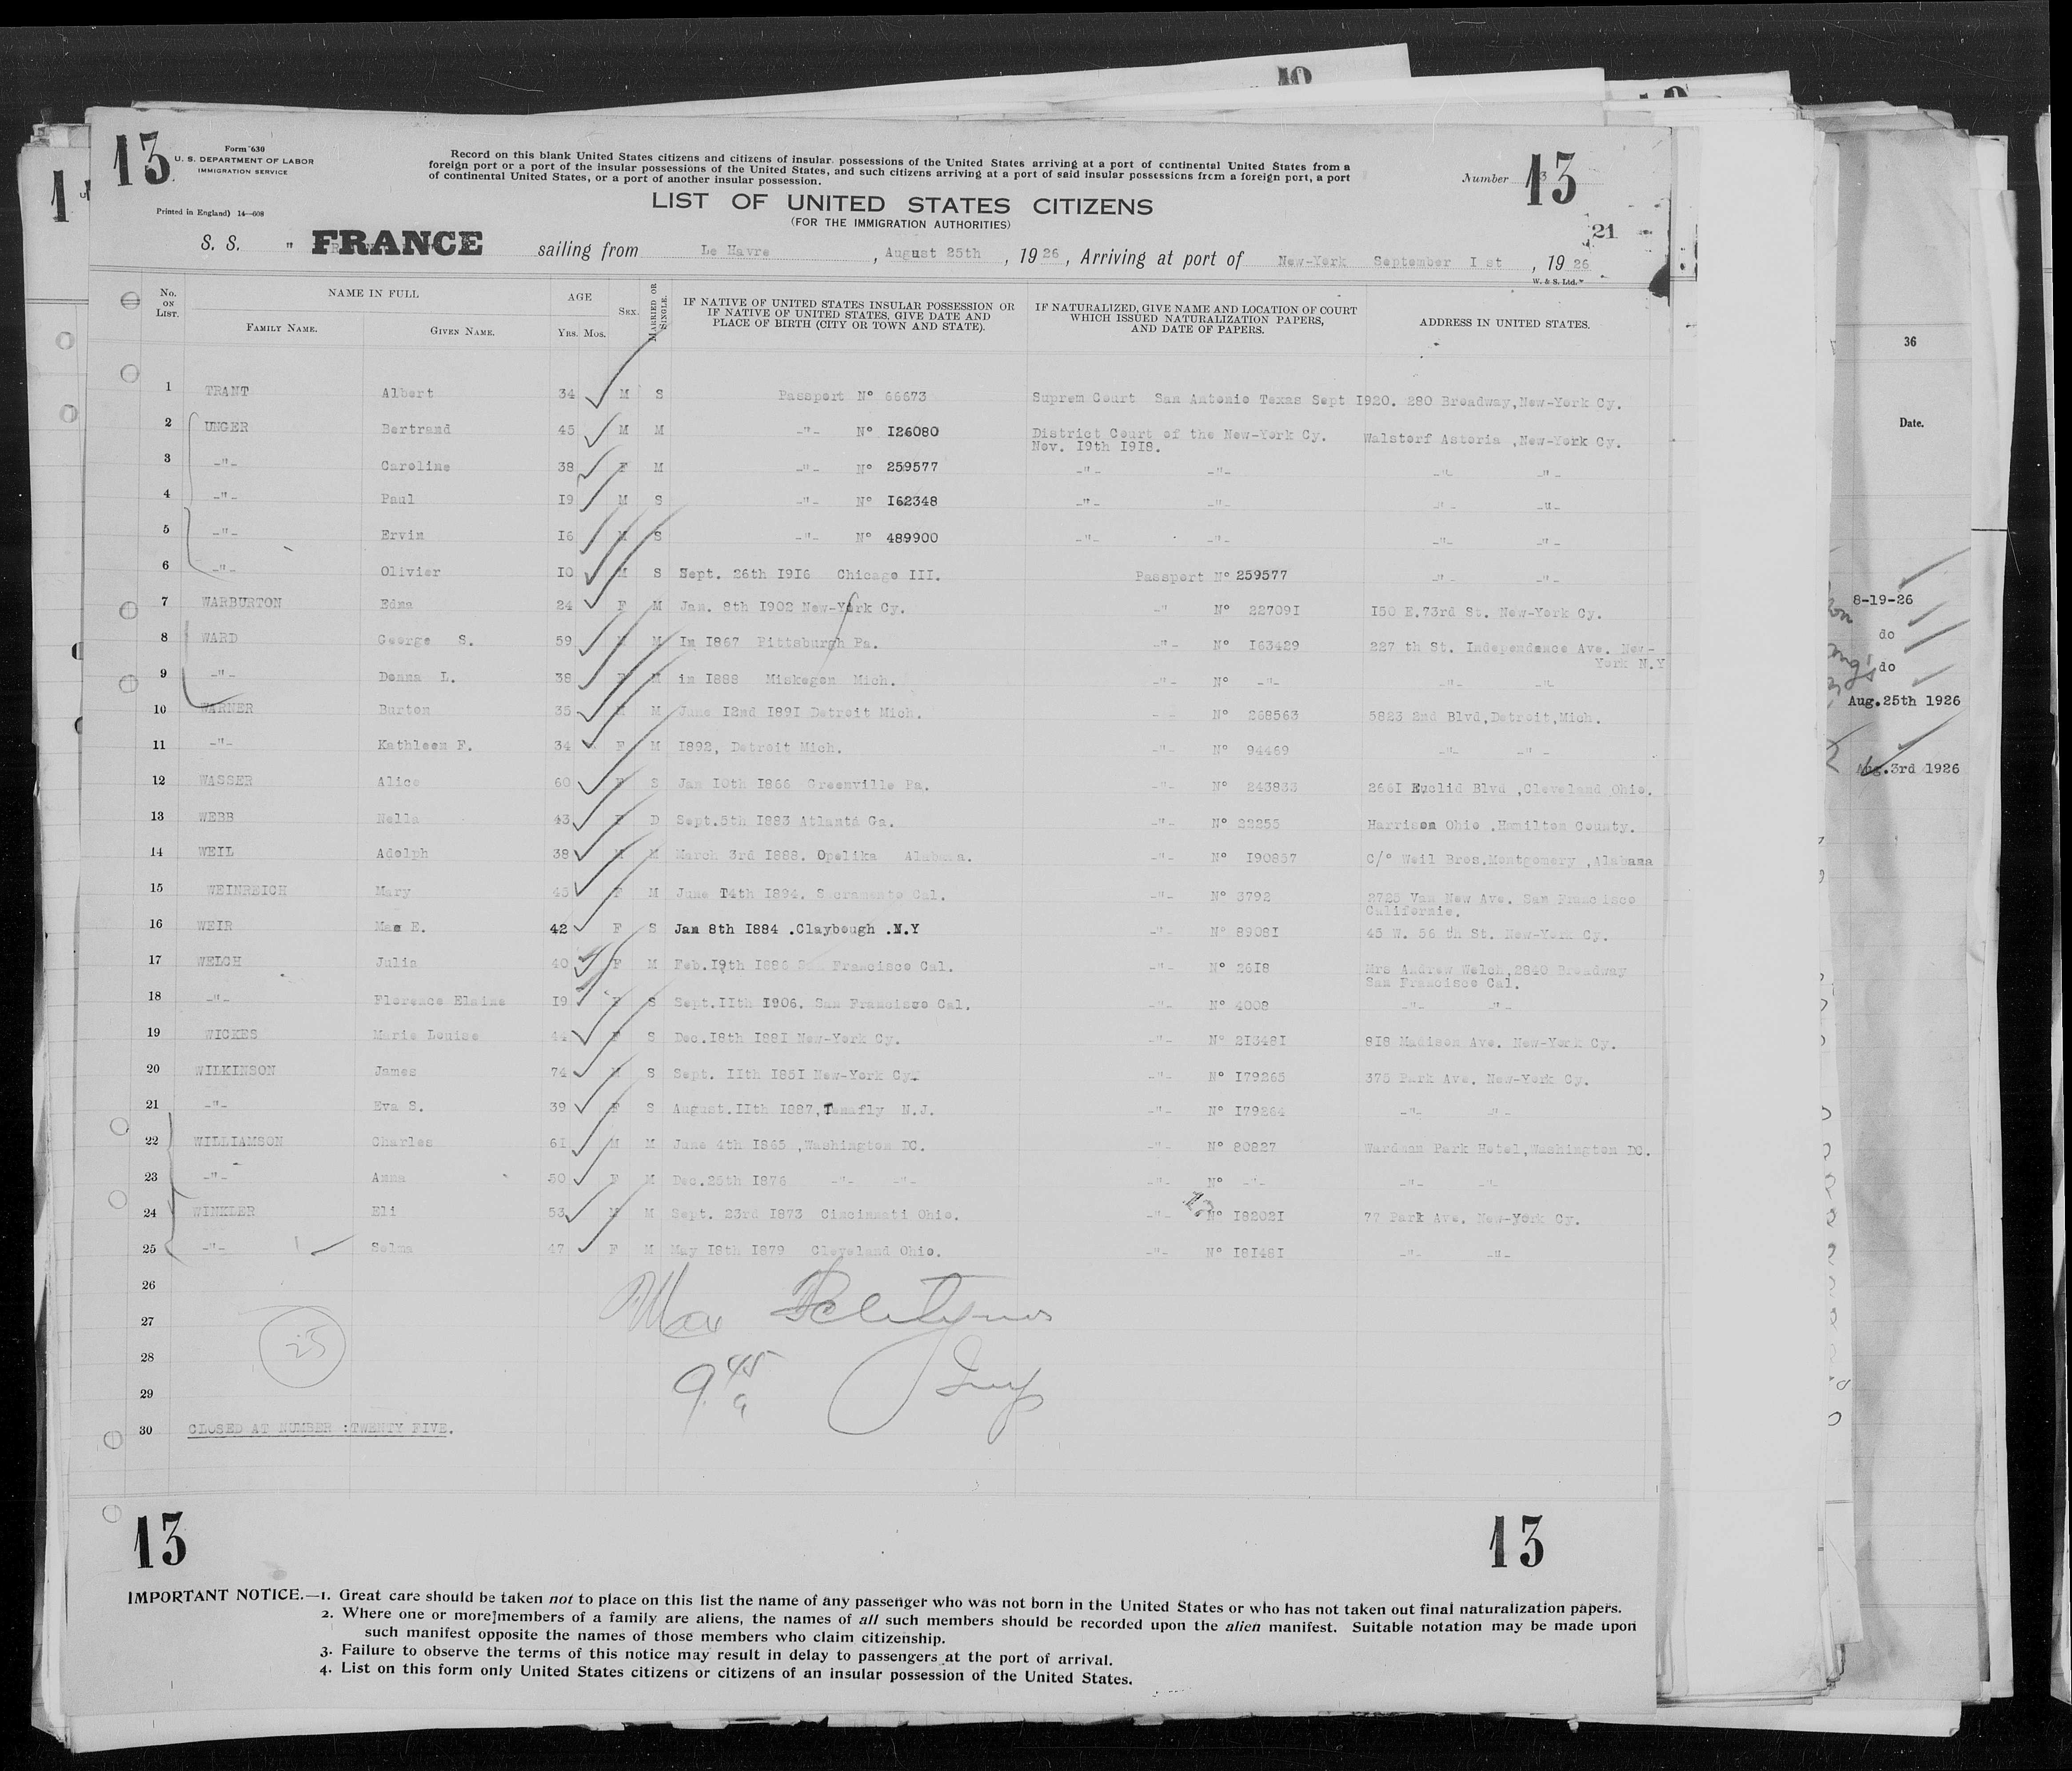 10
13
Form 630
U. S. DEPARTMENT OF LABOR
IMMIGRATION SERVICE
Printed in England) 14—608
Record on this blank United States citizens and citizens of insular possessions of the United States arriving at a port of continental United States from a
foreign port or a port of the insular possessions of the United States, and such citizens arriving at a port of said insular possessions from a foreign port, a port
of continental United States, or a port of another insular possession.
Number 13
LIST OF UNITED STATES CITIZENS
(FOR THE IMMIGRATION AUTHORITIES)
21
S. S. " FRANCE sailing from Le Havre , August 25th , 1926, Arriving at port of New-York September I st , 1926
W. & S. Ltd.
No. ON LIST. NAME IN FULL AGE SEX. MARRIED OR SINGLE. IF NATIVE OF UNITED STATES INSULAR POSSESSION OR IF NATIVE OF UNITED STATES, GIVE DATE AND PLACE OF BIRTH (CITY OR TOWN AND STATE). IF NATURALIZED, GIVE NAME AND LOCATION OF COURT WHICH ISSUED NATURALIZATION PAPERS, AND DATE OF PAPERS. ADDRESS IN UNITED STATES.
FAMILY NAME. GIVEN NAME. YRS. MOS.
1 TRANT Albert 34 M S Passport N° 66673 Suprem Court San Antonio Texas Sept I920. 280 Broadway,New-York Cy.
2 UNGER Bertrand 45 M M -"- N° I26080 District Court of the New-York Cy. Walstorf Astoria ,New-York Cy.
Nov. I9th I9I8.
3 -"- Caroline 38 F M -"- N° 259577 -"- -"- -"- -"-
4 -"- Paul I9 M S -"- N° I62348 -"- -"- -"- -"-
5 -"- Ervin I6 M S -"- N° 489900 -"- -"- -"- -"-
6 -"- Olivier IO M S Sept. 26th I9I6 Chicago III. Passport N° 259577 -"- -"-
7 WARBURTON Edna 24 F M Jan. 8th I902 New-York Cy. -" N° 22709I I50 E.73rd St. New-York Cy.
8 WARD George S. 59 M M In I867 Pittsburgh Pa. -"- N° I63429 227 th St. Independance Ave. New-
York N.Y
9 -"- Donna L. 38 F M in I888 Miskegon Mich. -"- N° -"- -"- -"-
10 WARNER Burton 35 M M June I2nd I89I Detroit Mich. - - N° 268563 5823 2nd Blvd,Detroit,Mich.
11 -"- Kathleen F. 34 F M I892, Detroit Mich. -"- N° 94469 -"- -"-
12 WASSER Alice 60 F S Jan IOth I866 Greenville Pa. -"- N° 243833 266I Euclid Blvd ,Cleveland Ohio.
13 WEBB Nella 43 F D Sept.5th I883 Atlanta Ga. -"- N° 22255 Harrison Ohio .Hamilton County.
14 WEIL Adolph 38 M M March 3rd I888. Opelika Alabama. -"- N° I90857 C/° Weil Bros.Montgomery ,Alabama
15 WEINREICH Mary 45 F M June I4th I894. Sacramento Cal. -"- N° 3792 2725 Van New Ave. San Francisco
Californie.
16 WEIR Mae E. 42 F S Jan 8th I884 .Claybough .N.Y -"- N° 8908I 45 W. 56 th St. New-York Cy.
17 WELCH Julia 40 F M Feb.I9th I886 San Francisco Cal. -"- N° 26I8 Mrs Andrew Welch,2840 Broadway
San Francisco Cal.
18 -"- Florence Elaine I9 F S Sept.IIth I906. San Francisco Cal. -"- N° 4008 -"- -"-
19 WICKES Marie Louise 44 F S Dec.I8th I88I New-York Cy. -"- N° 2I348I 8I8 Madison Ave. New-York Cy.
20 WILKINSON James 74 M S Sept. IIth I85I New-York Cy. -"- N° I79265 375 Park Ave. New-York Cy.
21 -"- Eva S. 39 F S August.IIth I887,Tenafly N.J. -"- N° I79264 -"- -"-
22 WILLIAMSON Charles 6I M M June 4th I865 ,Washington DC. -"- N° 80827 Wardman Park Hotel,Washington DC.
23 -"- Anna 50 F M Dec.25th I876 -"- -"- -"- N° -"- -"- -"-
24 WINKLER Eli 53 M M Sept. 23rd I873 Cincinnati Ohio. -"- N° I8202I 77 Park Ave. New-York Cy.
25 -"- Selma 47 F M May I8th I879 Cleveland Ohio. -"- N° I8I48I -"- -"-
26
27
28
29
30 CLOSED AT NUMBER :TWENTY FIVE.
25
Max
9 45
Insp
13
13
IMPORTANT NOTICE.—1. Great care should be taken not to place on this list the name of any passenger who was not born in the United States or who has not taken out final naturalization papers.
2. Where one or more members of a family are aliens, the names of all such members should be recorded upon the alien manifest. Suitable notation may be made upon
such manifest opposite the names of those members who claim citizenship.
3. Failure to observe the terms of this notice may result in delay to passengers at the port of arrival.
4. List on this form only United States citizens or citizens of an insular possession of the United States.
36
Date.
8-19-26
do
do
Aug.25th 1926
Aug.3rd 1926